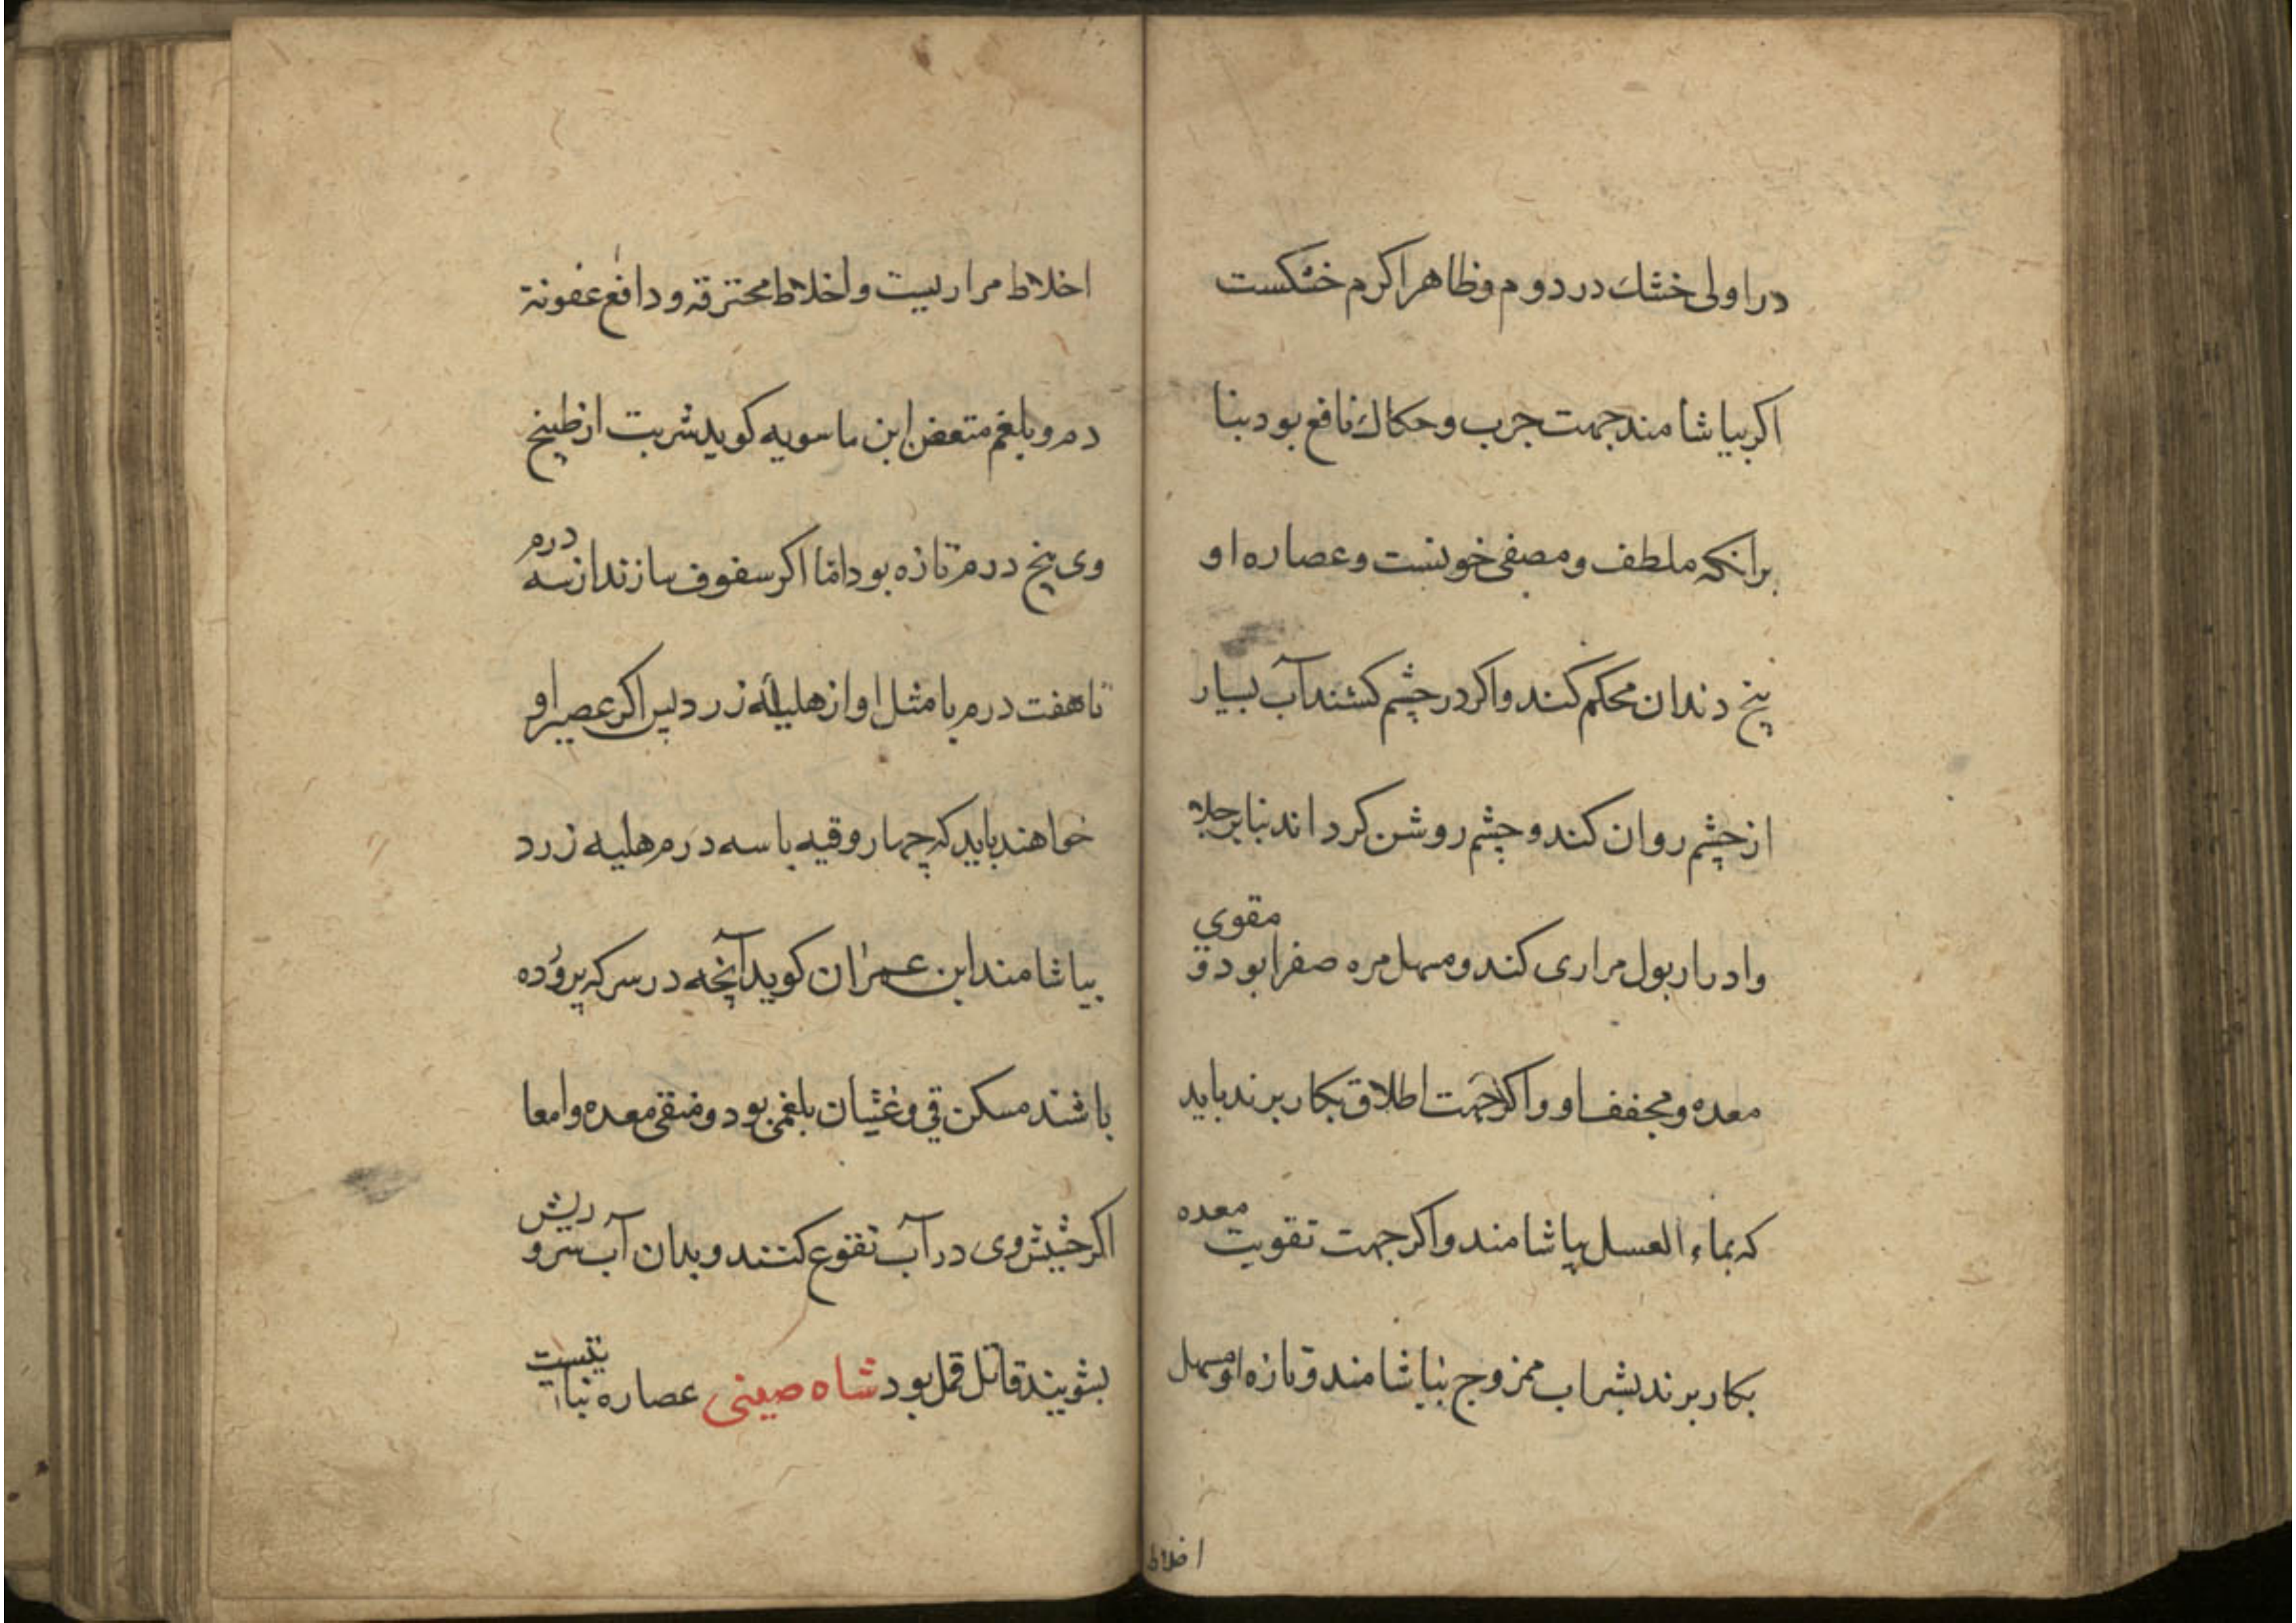 در اولی خشك در دوم و ظاهرا کرم خشکست
اکر بیاشامند جهت جرب و حکاك نافع بود بنا
برانکه ملطف و مصفی خونست و عصاره او
بیخ دندان محکم کند و اکر در چشم کشند آب بسیار
از چشم روان کند و چشم روشن کرداند بنا بر جلا
و ادرار بول مراری کند و مسهل مره صفرا بود و مقوی
معده و مجفف او و اکر جهت اطلاق بکار برند باید
که بماء العسل بیاشامند و اکر جهت تقویت معده
بکار برند بشراب ممزوج بیاشامند و تازه او مسهل
اخلاط
اخلاط مراریست و اخلاط محترقه و دافع عفونة
دم و بلغم متعفن ابن ماسویه کوید شربت از طبیخ
وی پنج درم تازه بود اما اکر سفوف سازند از سه درم
تا هفت درم با مثل او از هلیله زرد پس اکر عصیر او
خواهند باید که چهار وقیه با سه درم هلیه زرد
بیاشامند ابن عمران کوید آنچه در سرکه پروده
باشند مسکن قی و غثیان بلغمی بود و منقی معده و امعا
اکر حشیش وی در آب نقوع کنند و بدان آب سر و ریش
بشویند قاتل قمل بود شاه صینی عصاره نباتیست